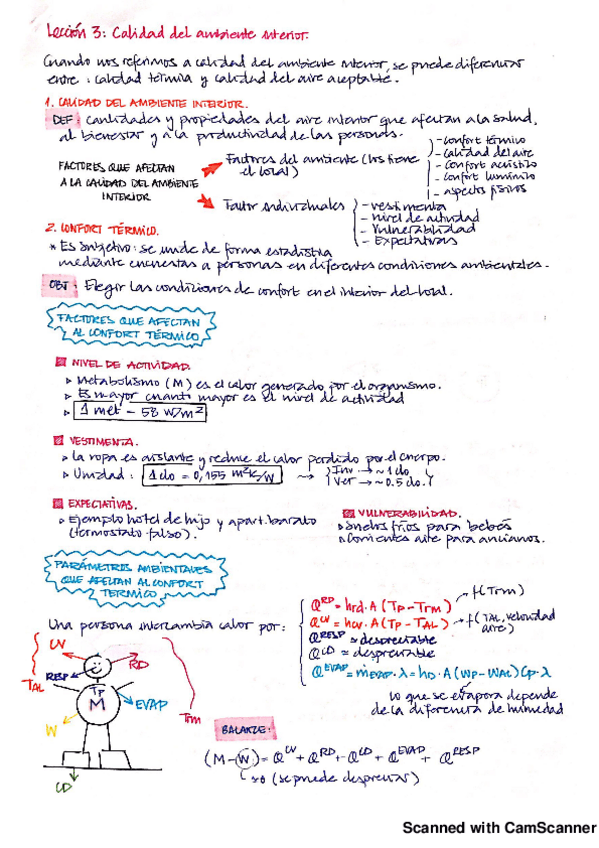 Lección 3: Calidad del ambiente interior.
Cuando nos referimos a calidad del ambiente interior, se puede diferenciar
entre: calidad térmica y calidad del aire aceptable.
1. CALIDAD DEL AMBIENTE INTERIOR.
DEF: cantidades y propiedades del aire interior que afectan a la salud,
al bienestar y a la productividad de las personas.
FACTORES QUE AFECTAN
A LA CALIDAD DEL AMBIENTE
INTERIOR
Factores del ambiente (los tiene
el local)
- Confort térmico
- Calidad del aire
- Confort acústico
- Confort lumínico
- aspectos físicos
Factor individuales
- vestimenta
- Nivel de actividad
- Vulnerabilidad
- Expectativas
2. CONFORT TÉRMICO.
* Es subjetivo: se mide de forma estadística
mediante encuestas a personas en diferentes condiciones ambientales.
OBJ: Elegir las condiciones de confort en el interior del local.
FACTORES QUE AFECTAN
AL CONFORT TÉRMICO
NIVEL DE ACTIVIDAD.
▹ Metabolismo (M) es el calor generado por el organismo.
▹ Es mayor cuanto mayor es el nivel de actividad
▹ 1 met - 58 W/m²
VESTIMENTA.
▹ La ropa es aislante y reduce el calor perdido por el cuerpo.
▹ Unidad: 1 clo = 0,155 m²K/W → Inv → ~ 1 clo
Ver → ~ 0.5 clo.
EXPECTATIVAS.
▹ Ejemplo hotel de lujo y apart. barato
(termostato falso).
VULNERABILIDAD.
▹ Suelos fríos para bebés
▹ Corrientes aire para ancianos.
PARÁMETROS AMBIENTALES
QUE AFECTAN AL CONFORT
TÉRMICO
Una persona intercambia calor por:
Q^RD = hrd·A (Tp - Trm) → f(Trm)
Q^CV = hcv·A (Tp - TAL) → f(TAL, velocidad
aire)
Q^RESP ≈ despreciable
Q^CD ≈ despreciable
Q^EVAP = mevap·λ = hD·A (Wp - WAL) Cp·λ
lo que se evapora depende
de la diferencia de humedad
CV
RD
RESP
TAL
Tp
M
EVAP
Trm
W
CD
BALANCE:
(M - W) = Q^CV + Q^RD + Q^CD + Q^EVAP + Q^RESP
≈0 (se puede despreciar)
Scanned with CamScanner